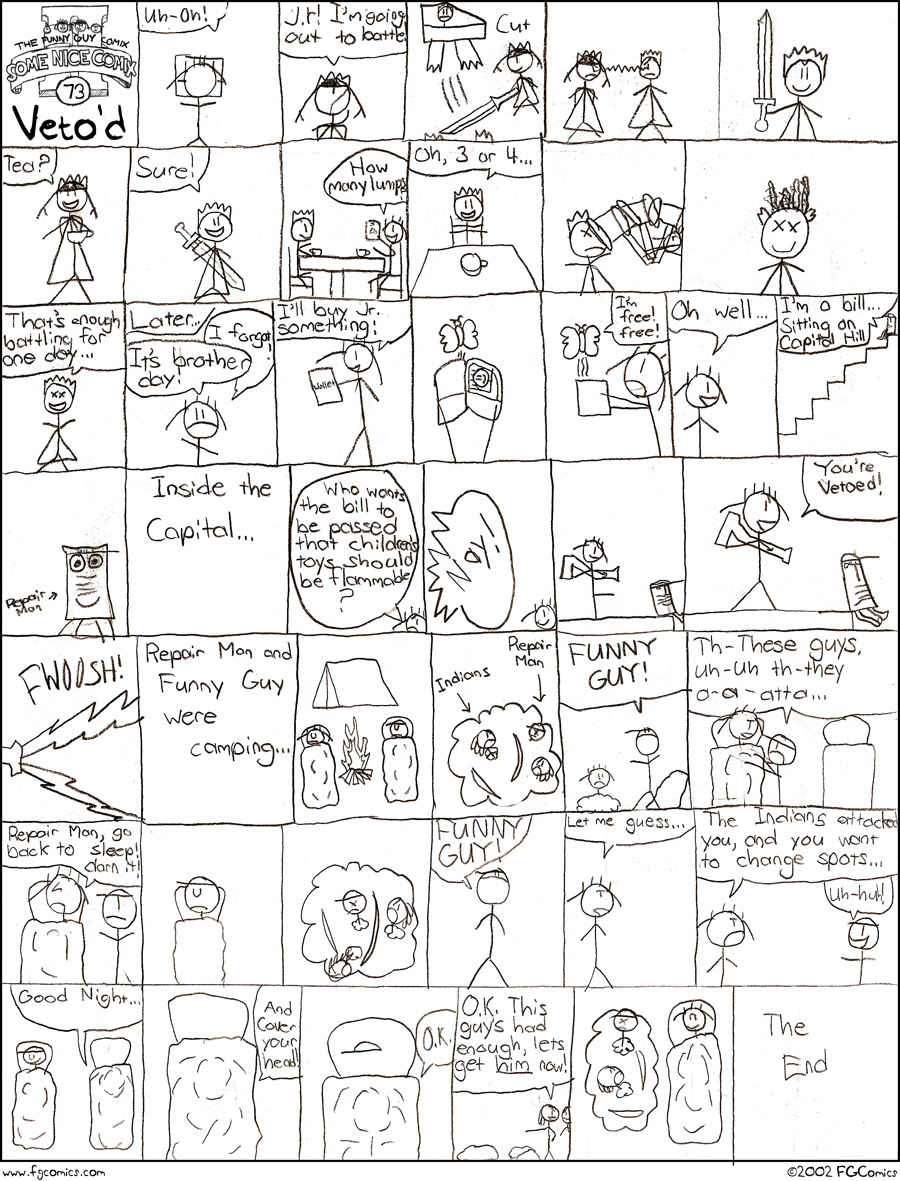 THE FUNNY GUY COMIX
SOME NICE COMIX
73
Veto'd
Uh-Oh!
J.r! I'm going
out to battle
Cut
Tea?
Sure!
How
many lumps
Oh, 3 or 4...
That's enough
battling for
one day...
Later...
I forgot!
It's brother
day!
I'll buy Jr.
something!
Wallet
I'm
free!
free!
Oh well...
I'm a bill...
Sitting on
Capital Hill
Repair
Man
Inside the
Capital...
Who wants
the bill to
be passed
that children's
toys should
be flammable
?
You're
Vetoed!
FWOOSH!
Repair Man and
Funny Guy
were
camping...
Indians
Repair
Man
FUNNY
GUY!
Th-These guys,
uh-uh th-they
a-a-atta...
Repair Man, go
back to sleep!
darn it!
FUNNY
GUY!
Let me guess...
The Indians attacked
you, and you want
to change spots...
Uh-huh!
Good Night...
And
Cover
your
head!
O.K.
O.K. This
guys had
enough, lets
get him now!
The
End
www.fgcomics.com
©2002 FGComics